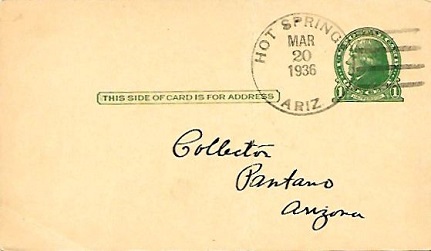 HOT SPRINGS
MAR
20
1936
ARIZ.
1 1
THIS SIDE OF CARD IS FOR ADDRESS
Collector
Pantano
Arizona